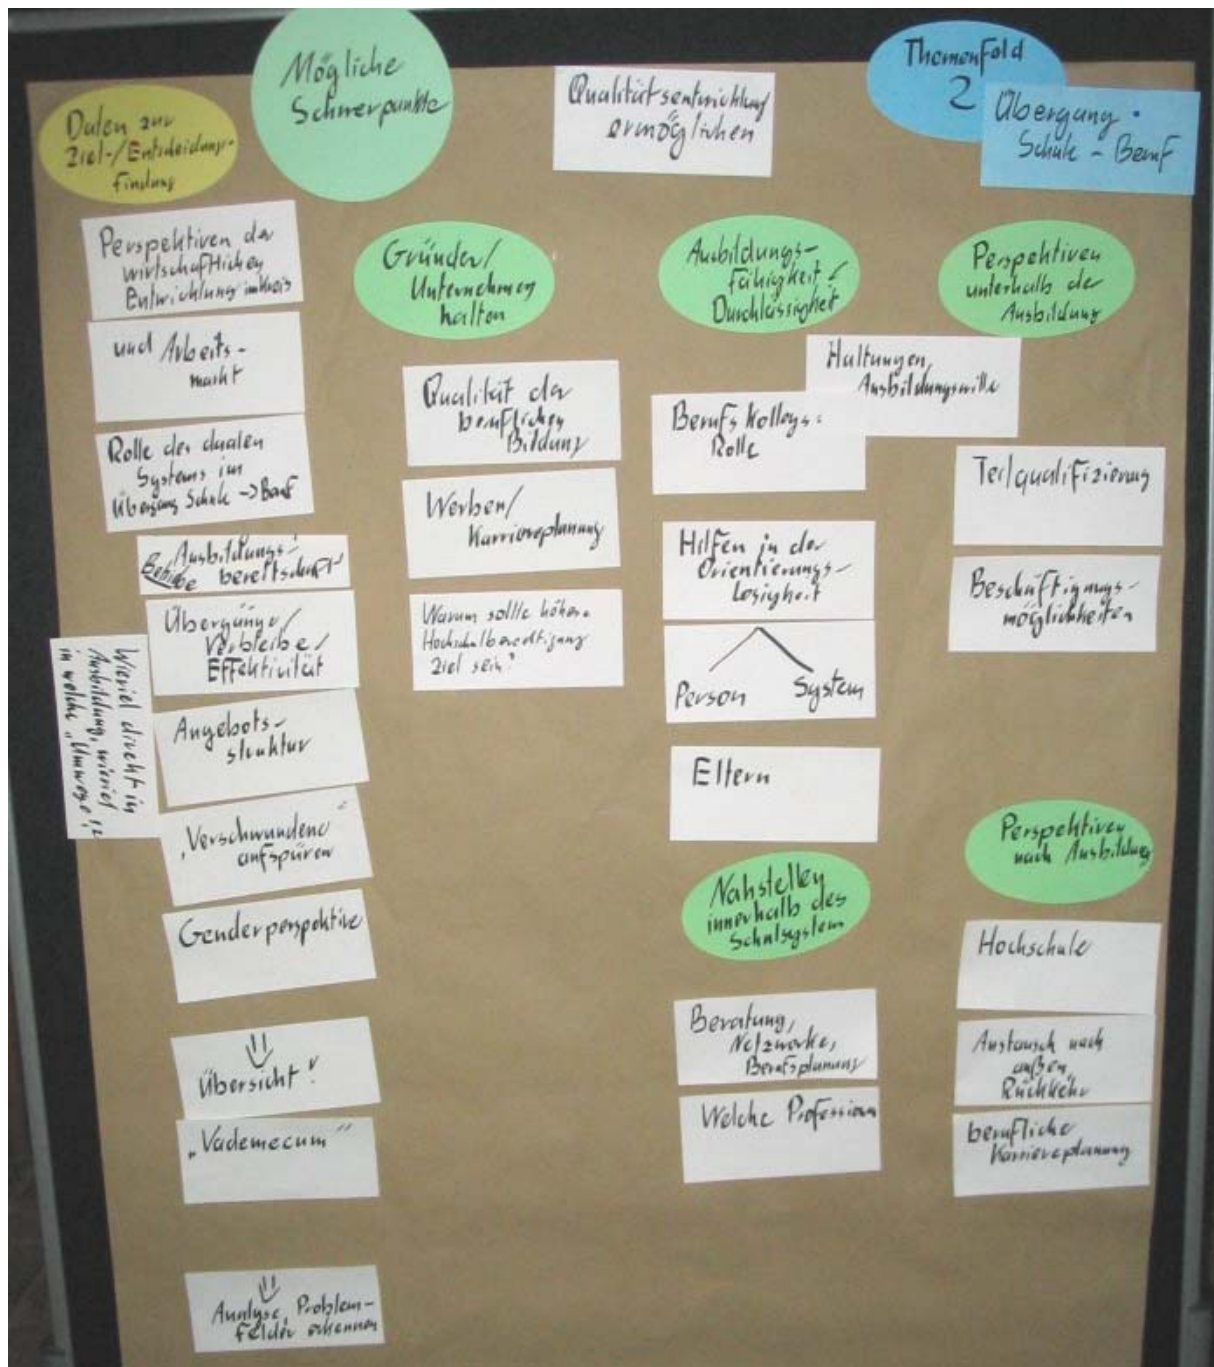 Mögliche
Schwerpunkte
Qualitätsentwicklung
ermöglichen
Themenfeld
2
Übergang
Schule - Beruf
Daten zur
Ziel-/Entscheidungs-
findung
Perspektiven der
wirtschaftlichen
Entwicklung im Kreis
und Arbeits-
markt
Rolle des dualen
Systems im
Übergang Schule -> Beruf
Ausbildungs-
bereitschaft
Übergänge/
Verbleibe/
Effektivität
Wieviel direkt in
Ausbildung, wieviel
in welche „Umwege“
Angebots-
struktur
„Verschwundene“
aufspüren
Genderperspektive
Übersicht!
„Vademecum“
Analyse, Problem-
felder erkennen
Gründer/
Unternehmen
halten
Qualität der
beruflichen
Bildung
Werben/
Karriereplanung
Warum sollte höhere
Hochschulberechtigung
Ziel sein?
Ausbildungs-
fähigkeit/
Durchlässigkeit
Haltungen,
Ausbildungswille
Berufskollegs:
Rolle
Hilfen in der
Orientierungs-
losigkeit
Person System
Eltern
Nahstellen
innerhalb des
Schulsystem
Beratung,
Netzwerke,
Berufsplanung
Welche Profession
Perspektiven
unterhalb der
Ausbildung
Teilqualifizierung
Beschäftigungs-
möglichkeiten
Perspektiven
nach Ausbildung
Hochschule
Austausch nach
außen,
Rückkehr
berufliche
Karriereplanung